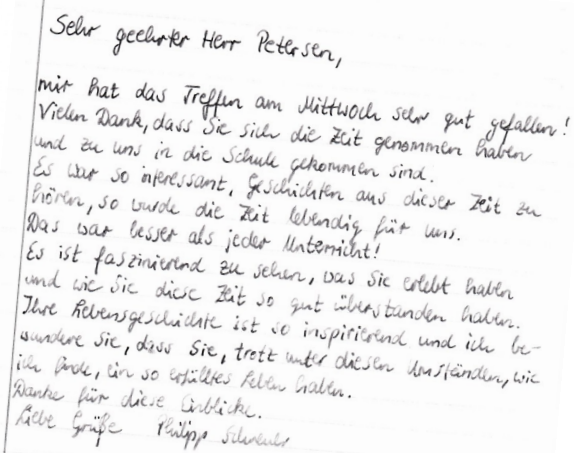 Sehr geehrter Herr Petersen,
mir hat das Treffen am Mittwoch sehr gut gefallen!
Vielen Dank, dass Sie sich die Zeit genommen haben
und zu uns in die Schule gekommen sind.
Es war so interessant, Geschichten aus dieser Zeit zu
hören, so wurde die Zeit lebendig für uns.
Das war besser als jeder Unterricht!
Es ist faszinierend zu sehen, was Sie erlebt haben
und wie Sie diese Zeit so gut überstanden haben.
Ihre Lebensgeschichte ist so inspirierend und ich be-
wundere Sie, dass Sie, trotz unter diesen Umständen, wie
ich finde, ein so erfülltes Leben haben.
Danke für diese Einblicke.
Liebe Grüße Philipp